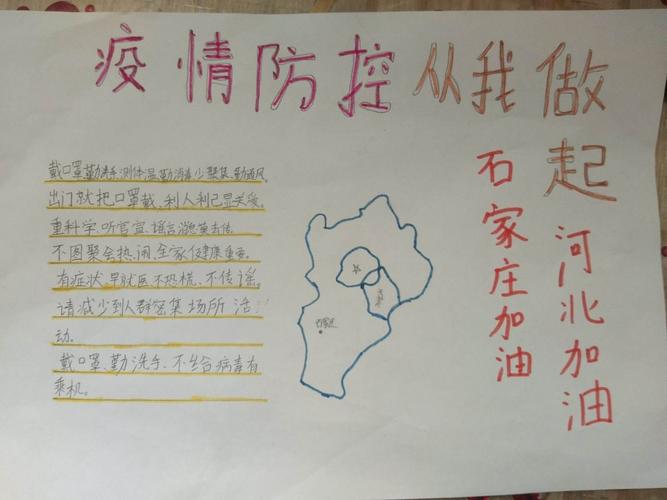 疫情防控从我做起
戴口罩勤洗手.测体温.勤消毒少聚集.勤通风.
出门就把口罩戴、利人利己显关爱.
重科学、听官宣、谣言消息莫去传.
不图聚会热闹,全家健康重要.
有症状、早就医不恐慌、不传谣.
请减少到人群密集场所活
动.
戴口罩、勤洗手、不给病毒有
乘机.
石家庄
石家庄加油
河北加油